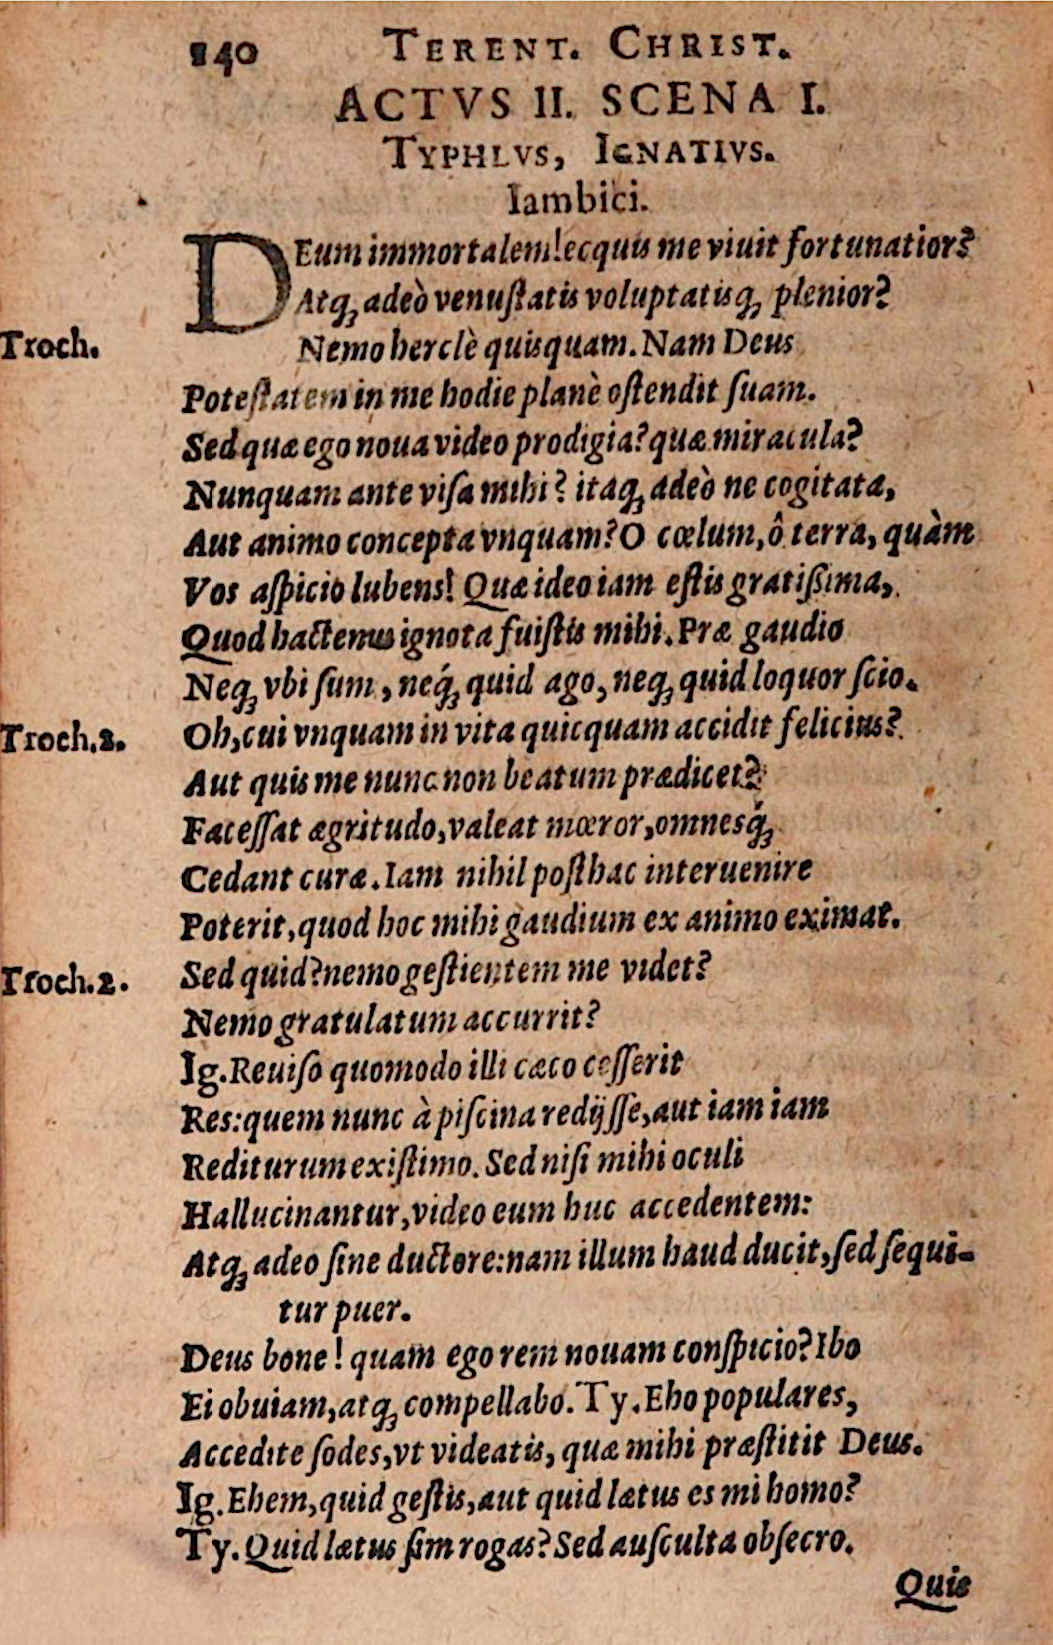 140 TERENT. CHRIST.
ACTVS II. SCENA I.
TYPHLVS, IGNATIVS.
Iambici.
DEum immortalem! ecquis me viuit fortunatior?
Atq́ꝫ adeò venuſtatis voluptatisqꝫ plenior?
Troch. Nemo herclè quisquam. Nam Deus
Poteſtatem in me hodie planè oſtendit ſuam.
Sed quæ ego noua video prodigia? quæ miracula?
Nunquam ante viſa mihi? itaqꝫ adeò ne cogitata,
Aut animo concepta vnquam? O cœlum, ô terra, quàm
Vos aſpicio lubens! Quæ ideo iam eſtis gratißima,
Quod hactenus ignota fuiſtis mihi. Præ gaudio
Neqꝫ vbi ſum, neq́ꝫ quid ago, neqꝫ quid loquor ſcio.
Troch.2. Oh, cui vnquam in vita quicquam accidit felicius?
Aut quis me nunc non beatum prædicet?
Faceſſat ægritudo, valeat mœror, omnesq́ꝫ
Cedant curæ. Iam nihil poſthac interuenire
Poterit, quod hoc mihi gaudium ex animo eximat.
Troch.2. Sed quid? nemo geſtientem me videt?
Nemo gratulatum accurrit?
Ig. Reuiſo quomodo illi cæco ceſſerit
Res: quem nunc à piſcina redijſſe, aut iam iam
Rediturum exiſtimo. Sed niſi mihi oculi
Hallucinantur, video eum huc accedentem:
Atqꝫ adeo ſine ductore: nam illum haud ducit, ſed ſequi-
tur puer.
Deus bone! quam ego rem nouam conſpicio? Ibo
Ei obuiam, atqꝫ compellabo. Ty. Eho populares,
Accedite ſodes, vt videatis, quæ mihi præſtitit Deus.
Ig. Ehem, quid geſtis, aut quid lætus es mi homo?
Ty. Quid lætus ſim rogas? Sed auſculta obſecro.
Quis